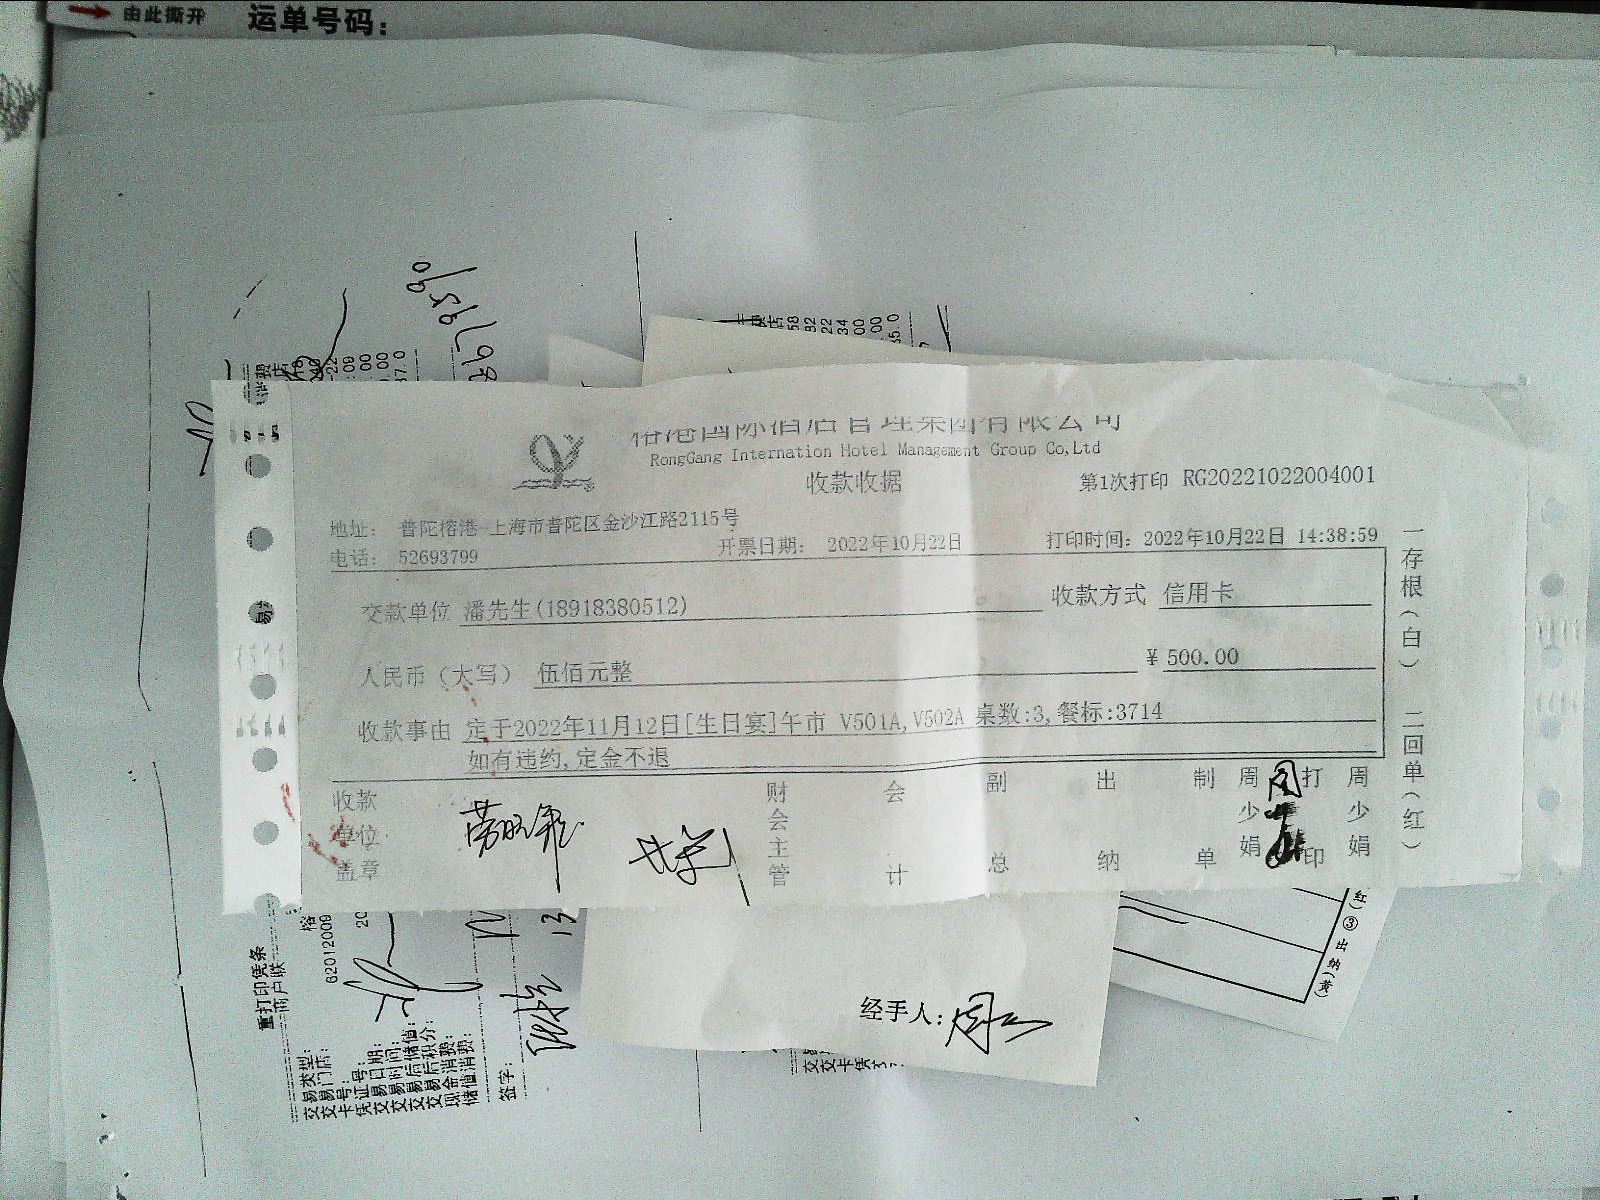 由此撕开 运单号码：
榕港国际酒店管理集团有限公司
RongGang Internation Hotel Management Group Co,Ltd
收款收据
第1次打印 RG20221022004001
地址： 普陀榕港-上海市普陀区金沙江路2115号
电话： 52693799 开票日期： 2022年10月22日 打印时间：2022年10月22日 14:38:59
交款单位 潘先生(18918380512) 收款方式 信用卡
人民币（大写） 伍佰元整 ¥ 500.00
收款事由 定于2022年11月12日[生日宴]午市 V501A,V502A 桌数:3,餐标:3714
如有违约,定金不退
收款单位盖章 财会主管 会计 副总 出纳 制单 周少娟 打印 周少娟
一存根（白） 二回单（红）
经手人：
红）③出纳（黄）
重打印凭条
商户联
交易类型：
交易门店：
卡号：
62012009
凭证号：
交易日期：
交易时间：
交易后储值：
交易后积分：
现金消费：
储值消费：
签字：